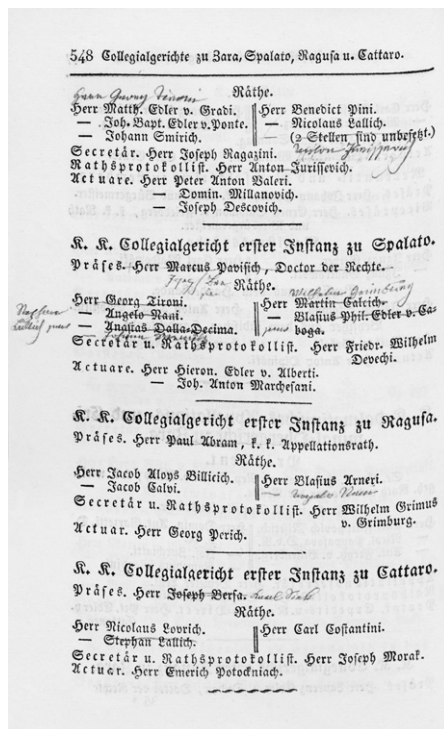 548 Collegialgerichte zu Zara, Spalato, Ragusa u. Cattaro.
Räthe.
Herr Georg Tironi
Herr Matth. Edler v. Gradi.
— Joh. Bapt. Edler v. Ponte.
— Johann Smirich.
Herr Benedict Pini.
— Nicolaus Lallich.
(2 Stellen sind unbesetzt.)
Secretär. Herr Joseph Ragazini.
Rathsprotocollist. Herr Anton Jurissevich.
Actuare. Herr Peter Anton Valeri.
— Domin. Millanovich.
— Joseph Descovich.
K. K. Collegialgericht erster Instanz zu Spalato.
Präses. Herr Marcus Pavisich, Doctor der Rechte.
Räthe.
Herr Georg Tironi.
— Angelo Nani.
— Anastas Dalla-Decima.
Wilhelm
Herr Martin Calcich.
— Blasius Phil. Edler v. Caboga.
Secretär u. Rathsprotocollist. Herr Friedr. Wilhelm
Devechi.
Actuare. Herr Hieron. Edler v. Alberti.
— Joh. Anton Marchesani.
K. K. Collegialgericht erster Instanz zu Ragusa.
Präses. Herr Paul Abram, k. k. Appellationsrath.
Räthe.
Herr Jacob Aloys Billicich.
— Jacob Calvi.
Herr Blasius Arneri.
Secretär u. Rathsprotocollist. Herr Wilhelm Grimus
v. Grimburg.
Actuar. Herr Georg Perich.
K. K. Collegialgericht erster Instanz zu Cattaro.
Präses. Herr Joseph Bersa.
Räthe.
Herr Nicolaus Lovrich.
— Stephan Lallich.
Herr Carl Costantini.
Secretär u. Rathsprotocollist. Herr Joseph Morak.
Actuar. Herr Emerich Potockniach.